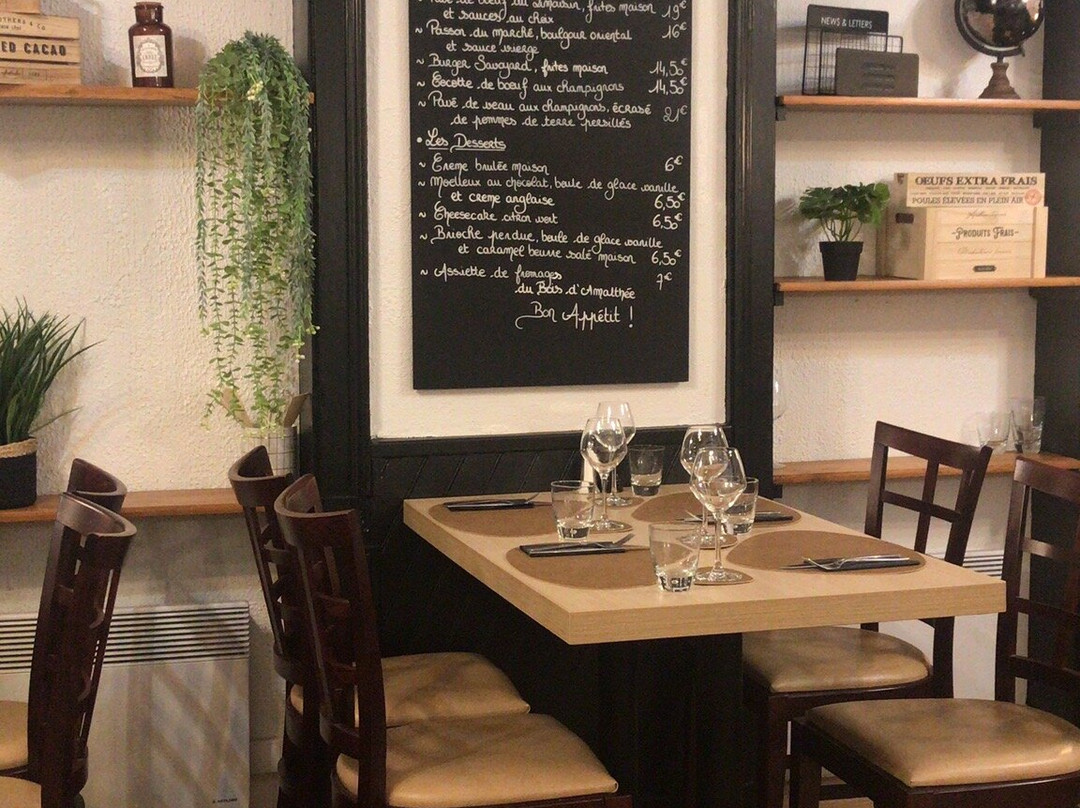 & Co
ED CACAO
Pavé de bœuf du Limousin, frites maison 19€
et sauces au choix
~ Poisson du marché, boulgour oriental 16€
et sauce vierge
~ Burger Savoyard, frites maison 14,50€
~ Cocotte de bœuf aux champignons 14,50€
~ Pavé de veau aux champignons, écrasé 21€
de pommes de terre persillés
• Les Desserts
~ Creme brulée maison 6€
~ Moelleux au chocolat, boule de glace vanille
et creme anglaise 6,50€
~ Cheesecake citron vert 6,50€
~ Brioche perdue, boule de glace vanille
et caramel beurre salé maison 6,50€
~ Assiette de fromages 7€
du Bois d'Amalthée
Bon Appétit !
NEWS & LETTERS
OEUFS EXTRA FRAIS
POULES ÉLEVÉES EN PLEIN AIR
-PRODUITS FRAIS-